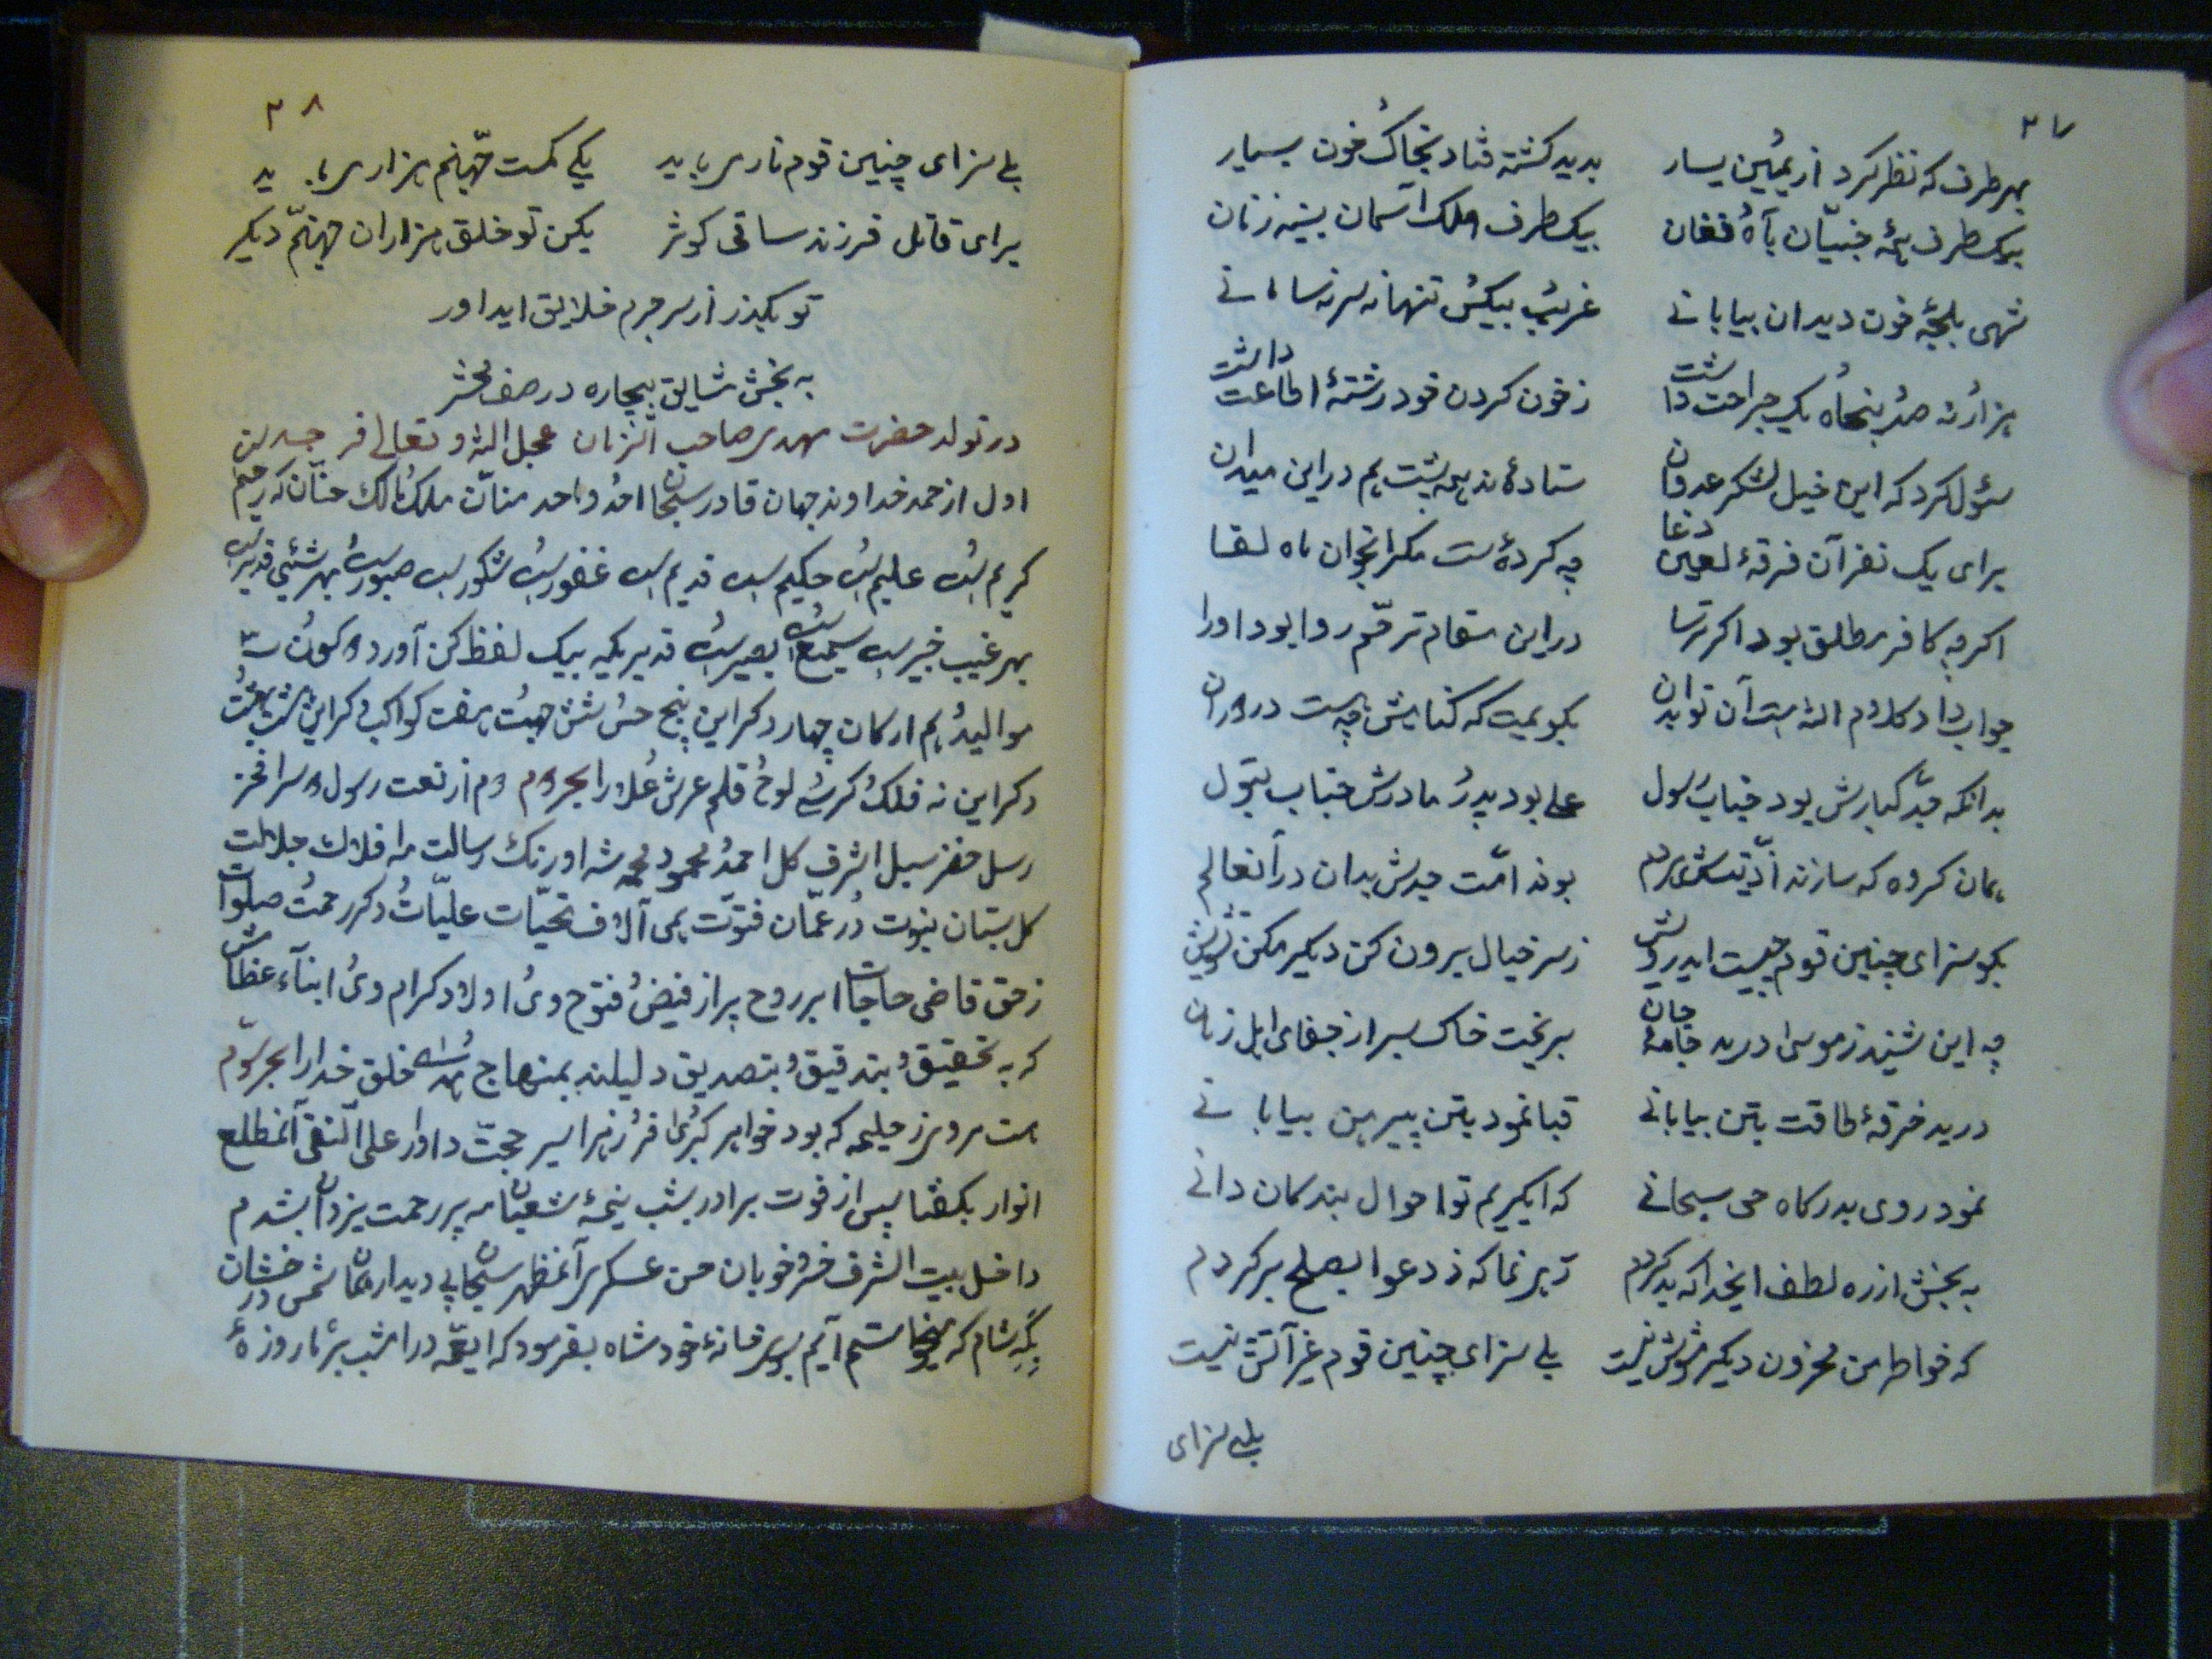 ۲۷
بهر طرف که نظر کرد از یمین یسار بدید کشته فتاد بخاک خون بسیار
بیک طرف همه جنیّان بآه فغان بیک طرف ملک آسمان بسینه زنان
شهی بلجهٔ خون دید ان بیابانی غریب بیکس تنها نه سر نه سامانی
هزار نه صد پنجاه یک جراحت داشت ز خون کردن خود رشتهٔ اطاعت داشت
سؤال کرد که این خیل لشکر عدوان ستادهٔ‌ند همه پشت هم در این میدان
برای یک نفر آن فرقهٔ لعین دغا چه کرده‌ست مکر انجوان ماه لقا
اکر چه کافر مطلق بود اکر ترسا در این مقام ترحّم روا بود او را
جواب داد کلام الله است آن تو بدان بکویمت که کناهش چه‌ست در دوران
بدانکه جدّ کبارش بود جناب رسول علی بود پدر مادرش جناب بتول
همان کروه که سازند اذیّتش هردم بوند امّت جدش بدان در آنعالم
بکو سزای چنین قوم چیست ایدرویش ز سر خیال برون کن دیکر مکن تشویش
چه این شنید ز موسی درید جامهٔ جان بریخت خاک بسر از جفای اهل زمان
درید خرقهٔ طاقت بتن بیابانی قبا نمود بتن پیرهن بیابانی
نمود روی بدرکاه حی سبحانی که ایکریم تو احوال بندکان دانی
به بخش از ره لطف ایخدا که بد کردم ز بر نما که ز دعوا بصلح بر کردم
که خواطر من محزون دیکر مشوش نیست بلی سزای چنین قوم غیر آتش نیست
بلی سزای
۲۸
بلی سزای چنین قوم ناری باید یکی کمست جهّنم هزار می باید
برای قاتل فرزند ساقی کوثر بکن تو خلق هزاران جهنّم دیکر
تو بکذر از سر جرم خلایق ایداور
به بخش شایق بیچاره در صف محشر
در تولد حضرت مهدی صاحب الزّمان عجل الله و تعالی فرجه
اول از حمد خداوند جهان قادر سبحان احد واحد منّان ملک مالک حنّان که رحیم
کریم است علیم است حکیم است قدیم است غفور است شکور است صبور است بهر شیئی قدیر است
بهر غیب خبیر است سمیع است بصیر است قدیریکه بیک لفظ کن آورده کون سه
موالید هم ارکان چهار دکر این پنج حس شش جهت هفت کواکب دکر این هشت بهشت
دکر این نه فلک کرسی لوح قلم عرش علا را بجر دم دم از نعت رسول دو سرا فخر
رسل خضر سبل اشرف کل احمد محمود محمد شه اورنک رسالت مه افلاک جلالت
کل بستان نبوت در عمّان فتوّت همی آلاف تحیّات علیّات دکر رحمت صلوات
ز حق قاضی حاجات ابر روح پر از فیض فتوح وی اولاد کرام وی ابنآء عظامش
که به تحقیق بتدقیق بتصدیق دلیلند بمنهاج خلق خدا را بجر دم
است مروی ز حلیمه که بود خواهر کبرای پسر حجت داور علی النقی آنمطلع
انوار بکفتا پس از فوت برادر بشب نیمهٔ شعبان مه پر رحمت یزدان بشدم
داخل بیت الشرف خسرو خوبان حسن عسکری آنمظهر سبحان پی دیدار همان شمس درخشان
بکه شام که میخواستم آیم بسوی خانهٔ خود شاه بفرمود که ایعمّه در امشب بر ما روزهٔ